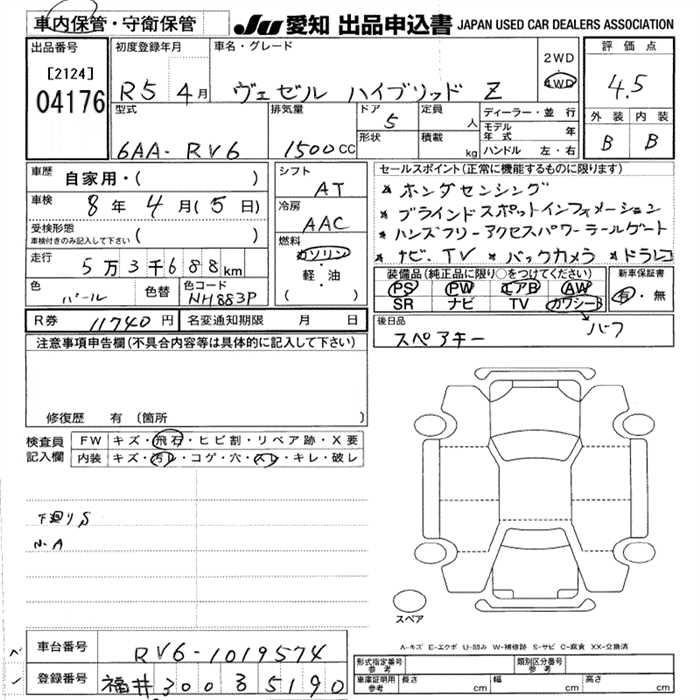 車内保管・守衛保管
JU 愛知 出品申込書 JAPAN USED CAR DEALERS ASSOCIATION
出品番号
[2124]
04176
初度登録年月
R5 4月
車名・グレード
ヴェゼル ハイブリッド Z
2WD
4WD
評価点
4.5
外装 内装
B B
型式
6AA-RV6
排気量
1500cc
ドア
5
形状
定員
人
積載
kg
ディーラー・並行
モデル年式 年
ハンドル 左・右
車歴
自家用・( )
車検
8年 4月(5日)
受検形態
車検付きのみ記入して下さい
( )
走行
5万3千688km
色
パール
色替
色コード
NH883P
シフト
AT
冷房
AAC
燃料
ガソリン
・
軽・油
( )
セールスポイント(正常に機能するものに限ります)
* ホンダセンシング
* ブラインドスポットインフォメーション
* ハンズフリーアクセスパワーテールゲート
* ナビ.TV * バックカメラ * ドラレコ
装備品(純正品に限り○をつけてください)
PS PW エアB AW
SR ナビ TV カワシート
新車保証書
有・無
ハーフ
R券 11740円
名変通知期限 月 日
後日品
スペアキー
注意事項申告欄(不具合内容等は具体的に記入して下さい)
修復歴 有(箇所 )
検査員記入欄
FW キズ・飛石・ヒビ割・リペア跡・X要
内装 キズ・汚レ・コゲ・穴・スレ・キレ・破レ
下廻りS
N.A
スペア
A-キズ E-エクボ U-凹み W-補修跡 S-サビ C-腐食 XX-交換済
車台番号
RV6-1019574
登録番号
福井 300 5190
形式指定番号 参考
類別区分番号 参考
車庫証明用 参考
長さ cm 幅 cm 高さ cm